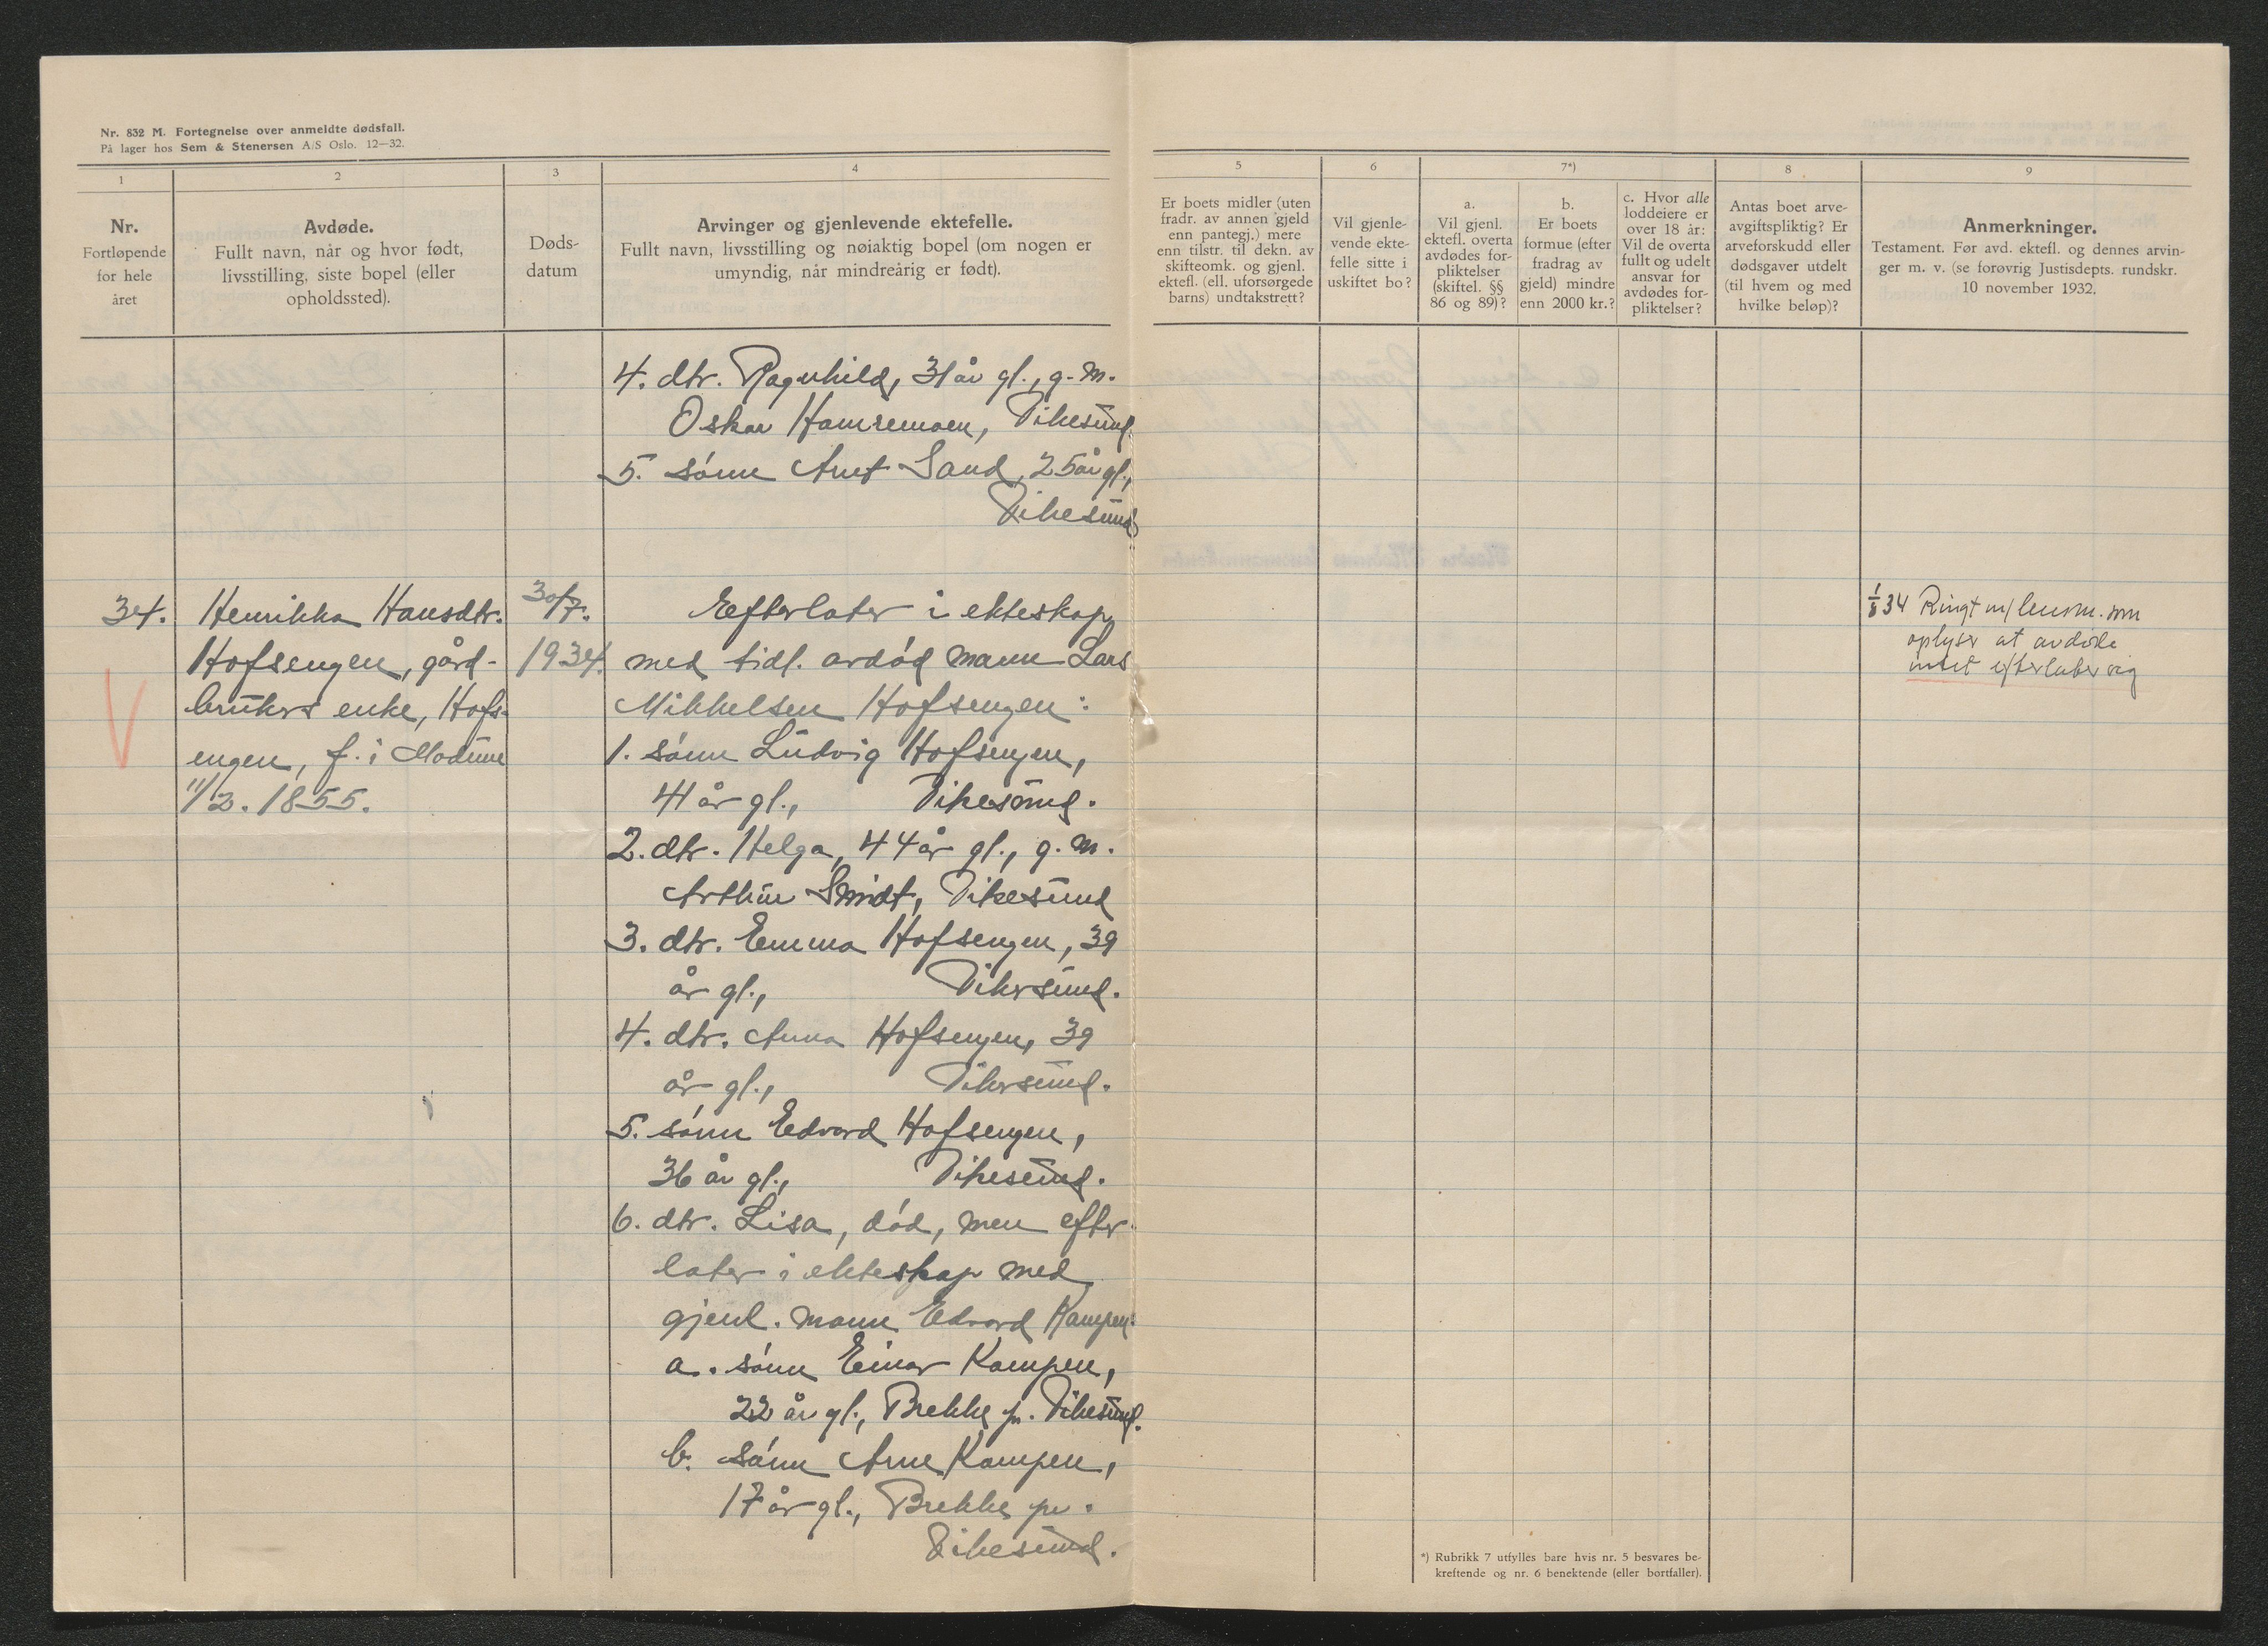 Nr. 832 M. Fortegnelse over anmeldte dødsfall.
På lager hos Sem & Stenersen A/S Oslo. 12—32.
1
Nr.
Fortløpende
for hele
året
2
Avdøde.
Fullt navn, når og hvor født,
livsstilling, siste bopel (eller
opholdssted).
3
Døds-
datum
4
Arvinger og gjenlevende ektefelle.
Fullt navn, livsstilling og nøiaktig bopel (om nogen er
umyndig, når mindreårig er født).
5
Er boets midler (uten
fradr. av annen gjeld
enn pantegj.) mere
enn tilstr. til dekn. av
skifteomk. og gjenl.
ektefl. (ell. uforsørgede
barns) undtakstrett?
6
Vil gjenle-
vende ekte-
felle sitte i
uskiftet bo?
7*)
a.
Vil gjenl.
ektefl. overta
avdødes for-
pliktelser
(skiftel. §§
86 og 89)?
b.
Er boets
formue (efter
fradrag av
gjeld) mindre
enn 2000 kr.?
c. Hvor alle
loddeiere er
over 18 år:
Vil de overta
fullt og udelt
ansvar for
avdødes for-
pliktelser?
8
Antas boet arve-
avgiftspliktig? Er
arveforskudd eller
dødsgaver utdelt
(til hvem og med
hvilke beløp)?
9
Anmerkninger.
Testament. Før avd. ektefl. og dennes arvin-
ger m. v. (se forøvrig Justisdepts. rundskr.
10 november 1932.
4. dtr. Ragnhild, 31 år gl., g. m.
Oskar Hamremoen, Vikesund.
5. sønn Arnt Sand, 25 år gl.,
Vikesund
34.
Henrikka Hansdtr.
Hofsengen, gård-
brukers enke, Hofs-
engen, f. i Modum
11/2. 1855.
30/7.
1934.
Efterlater i ekteskap
med tidl. avdød mann Lars
Mikkelsen Hofsengen:
1. sønn Ludvig Hofsengen,
41 år gl., Vikesund.
2. dtr. Helga, 44 år gl., g. m.
Arthur Smidt, Vikesund
3. dtr. Emma Hofsengen, 39
år gl., Vikersund.
4. dtr. Anna Hofsengen, 39
år gl., Vikersund.
5. sønn Edvard Hofsengen,
36 år gl., Vikesund.
6. dtr. Lisa, død, men efter-
later i ekteskap med
gjenl. mann Edvard Kampen:
a. sønn Einar Kampen,
22 år gl., Brekke pr. Vikesund.
b. sønn Arne Kampen,
17 år gl., Brekke pr.
Vikesund.
1/8 34 Ringt m/ lensm. som
oplyser at avdøde
intet efterlater sig
*) Rubrikk 7 utfylles bare hvis nr. 5 besvares be-
kreftende og nr. 6 benektende (eller bortfaller).